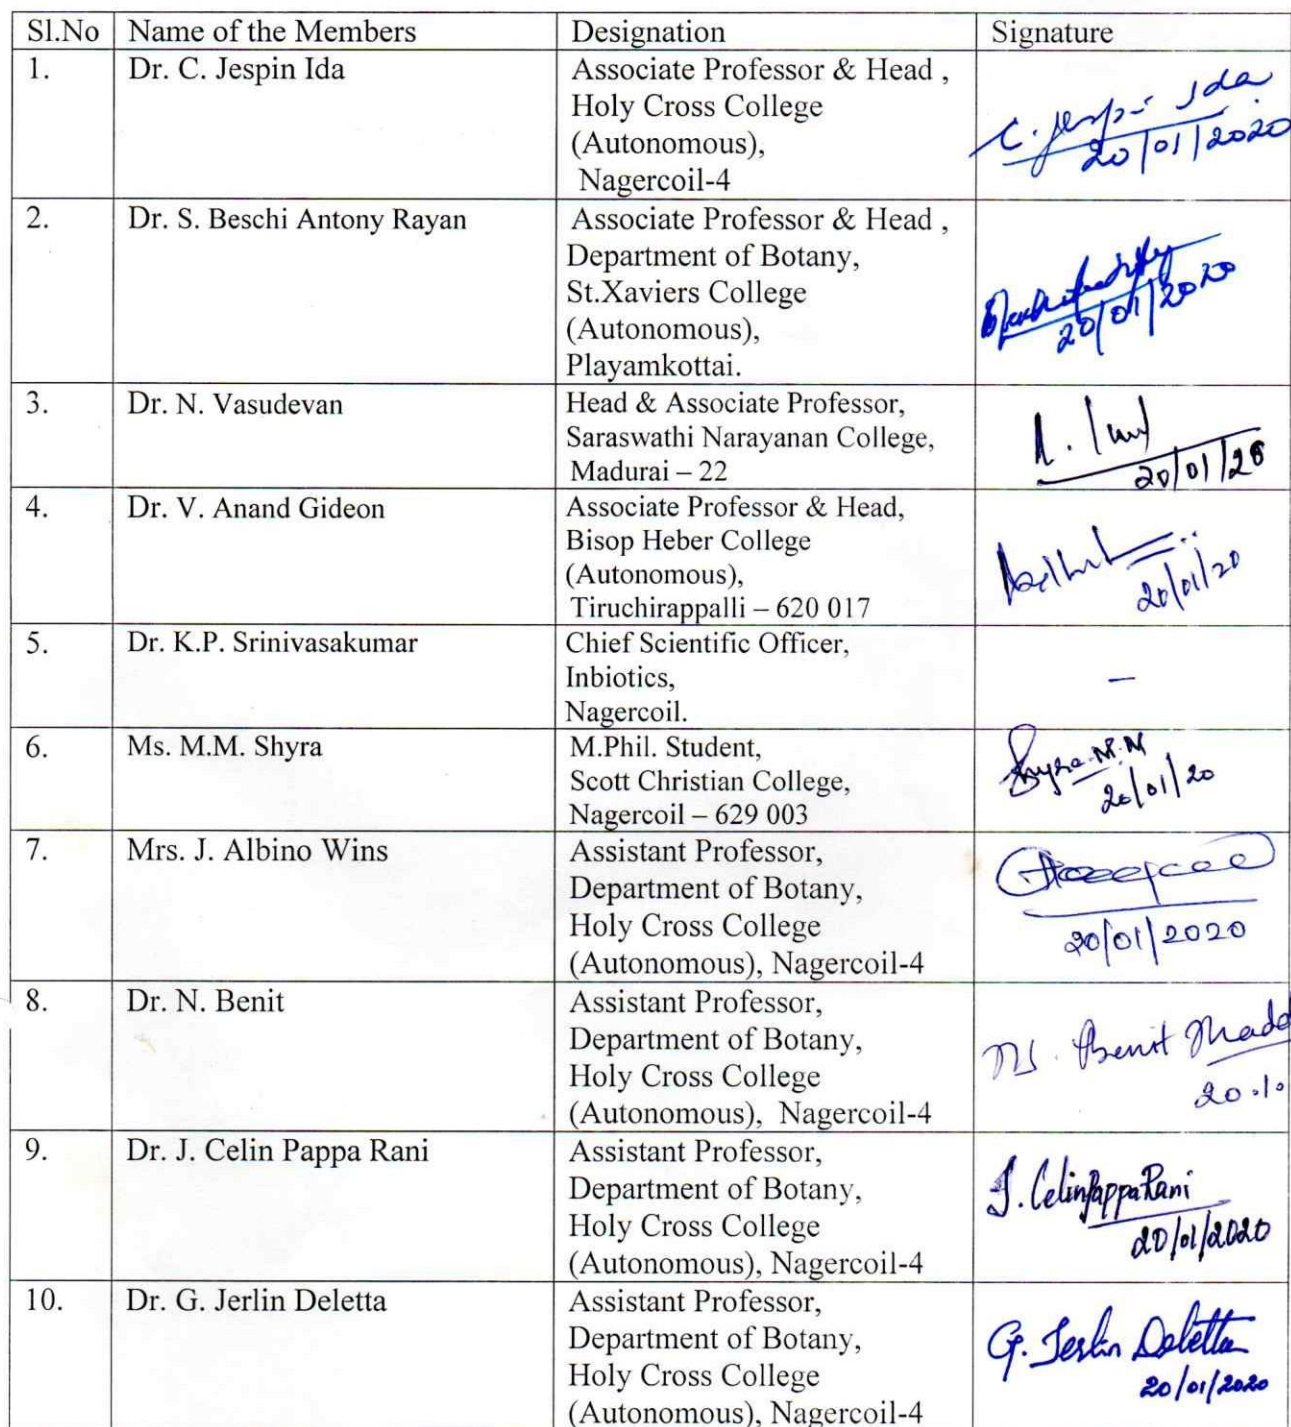 Sl.No Name of the Members Designation Signature
1. Dr. C. Jespin Ida Associate Professor & Head , 
Holy Cross College
(Autonomous),
Nagercoil-4
C. Jespi- Ida
20/01/2020
2. Dr. S. Beschi Antony Rayan Associate Professor & Head ,
Department of Botany,
St.Xaviers College
(Autonomous),
Playamkottai.
20/01/2020
3. Dr. N. Vasudevan Head & Associate Professor,
Saraswathi Narayanan College,
Madurai – 22
20/01/20
4. Dr. V. Anand Gideon Associate Professor & Head,
Bisop Heber College
(Autonomous),
Tiruchirappalli – 620 017
20/01/20
5. Dr. K.P. Srinivasakumar Chief Scientific Officer,
Inbiotics,
Nagercoil.
–
6. Ms. M.M. Shyra M.Phil. Student,
Scott Christian College,
Nagercoil – 629 003
Shyra M.M
20/01/20
7. Mrs. J. Albino Wins Assistant Professor,
Department of Botany,
Holy Cross College
(Autonomous), Nagercoil-4
20/01/2020
8. Dr. N. Benit Assistant Professor,
Department of Botany,
Holy Cross College
(Autonomous), Nagercoil-4
N. Benit
20.1.
9. Dr. J. Celin Pappa Rani Assistant Professor,
Department of Botany,
Holy Cross College
(Autonomous), Nagercoil-4
J. CelinPappaRani
20/01/2020
10. Dr. G. Jerlin Deletta Assistant Professor,
Department of Botany,
Holy Cross College
(Autonomous), Nagercoil-4
G. Jerlin Deletta
20/01/2020